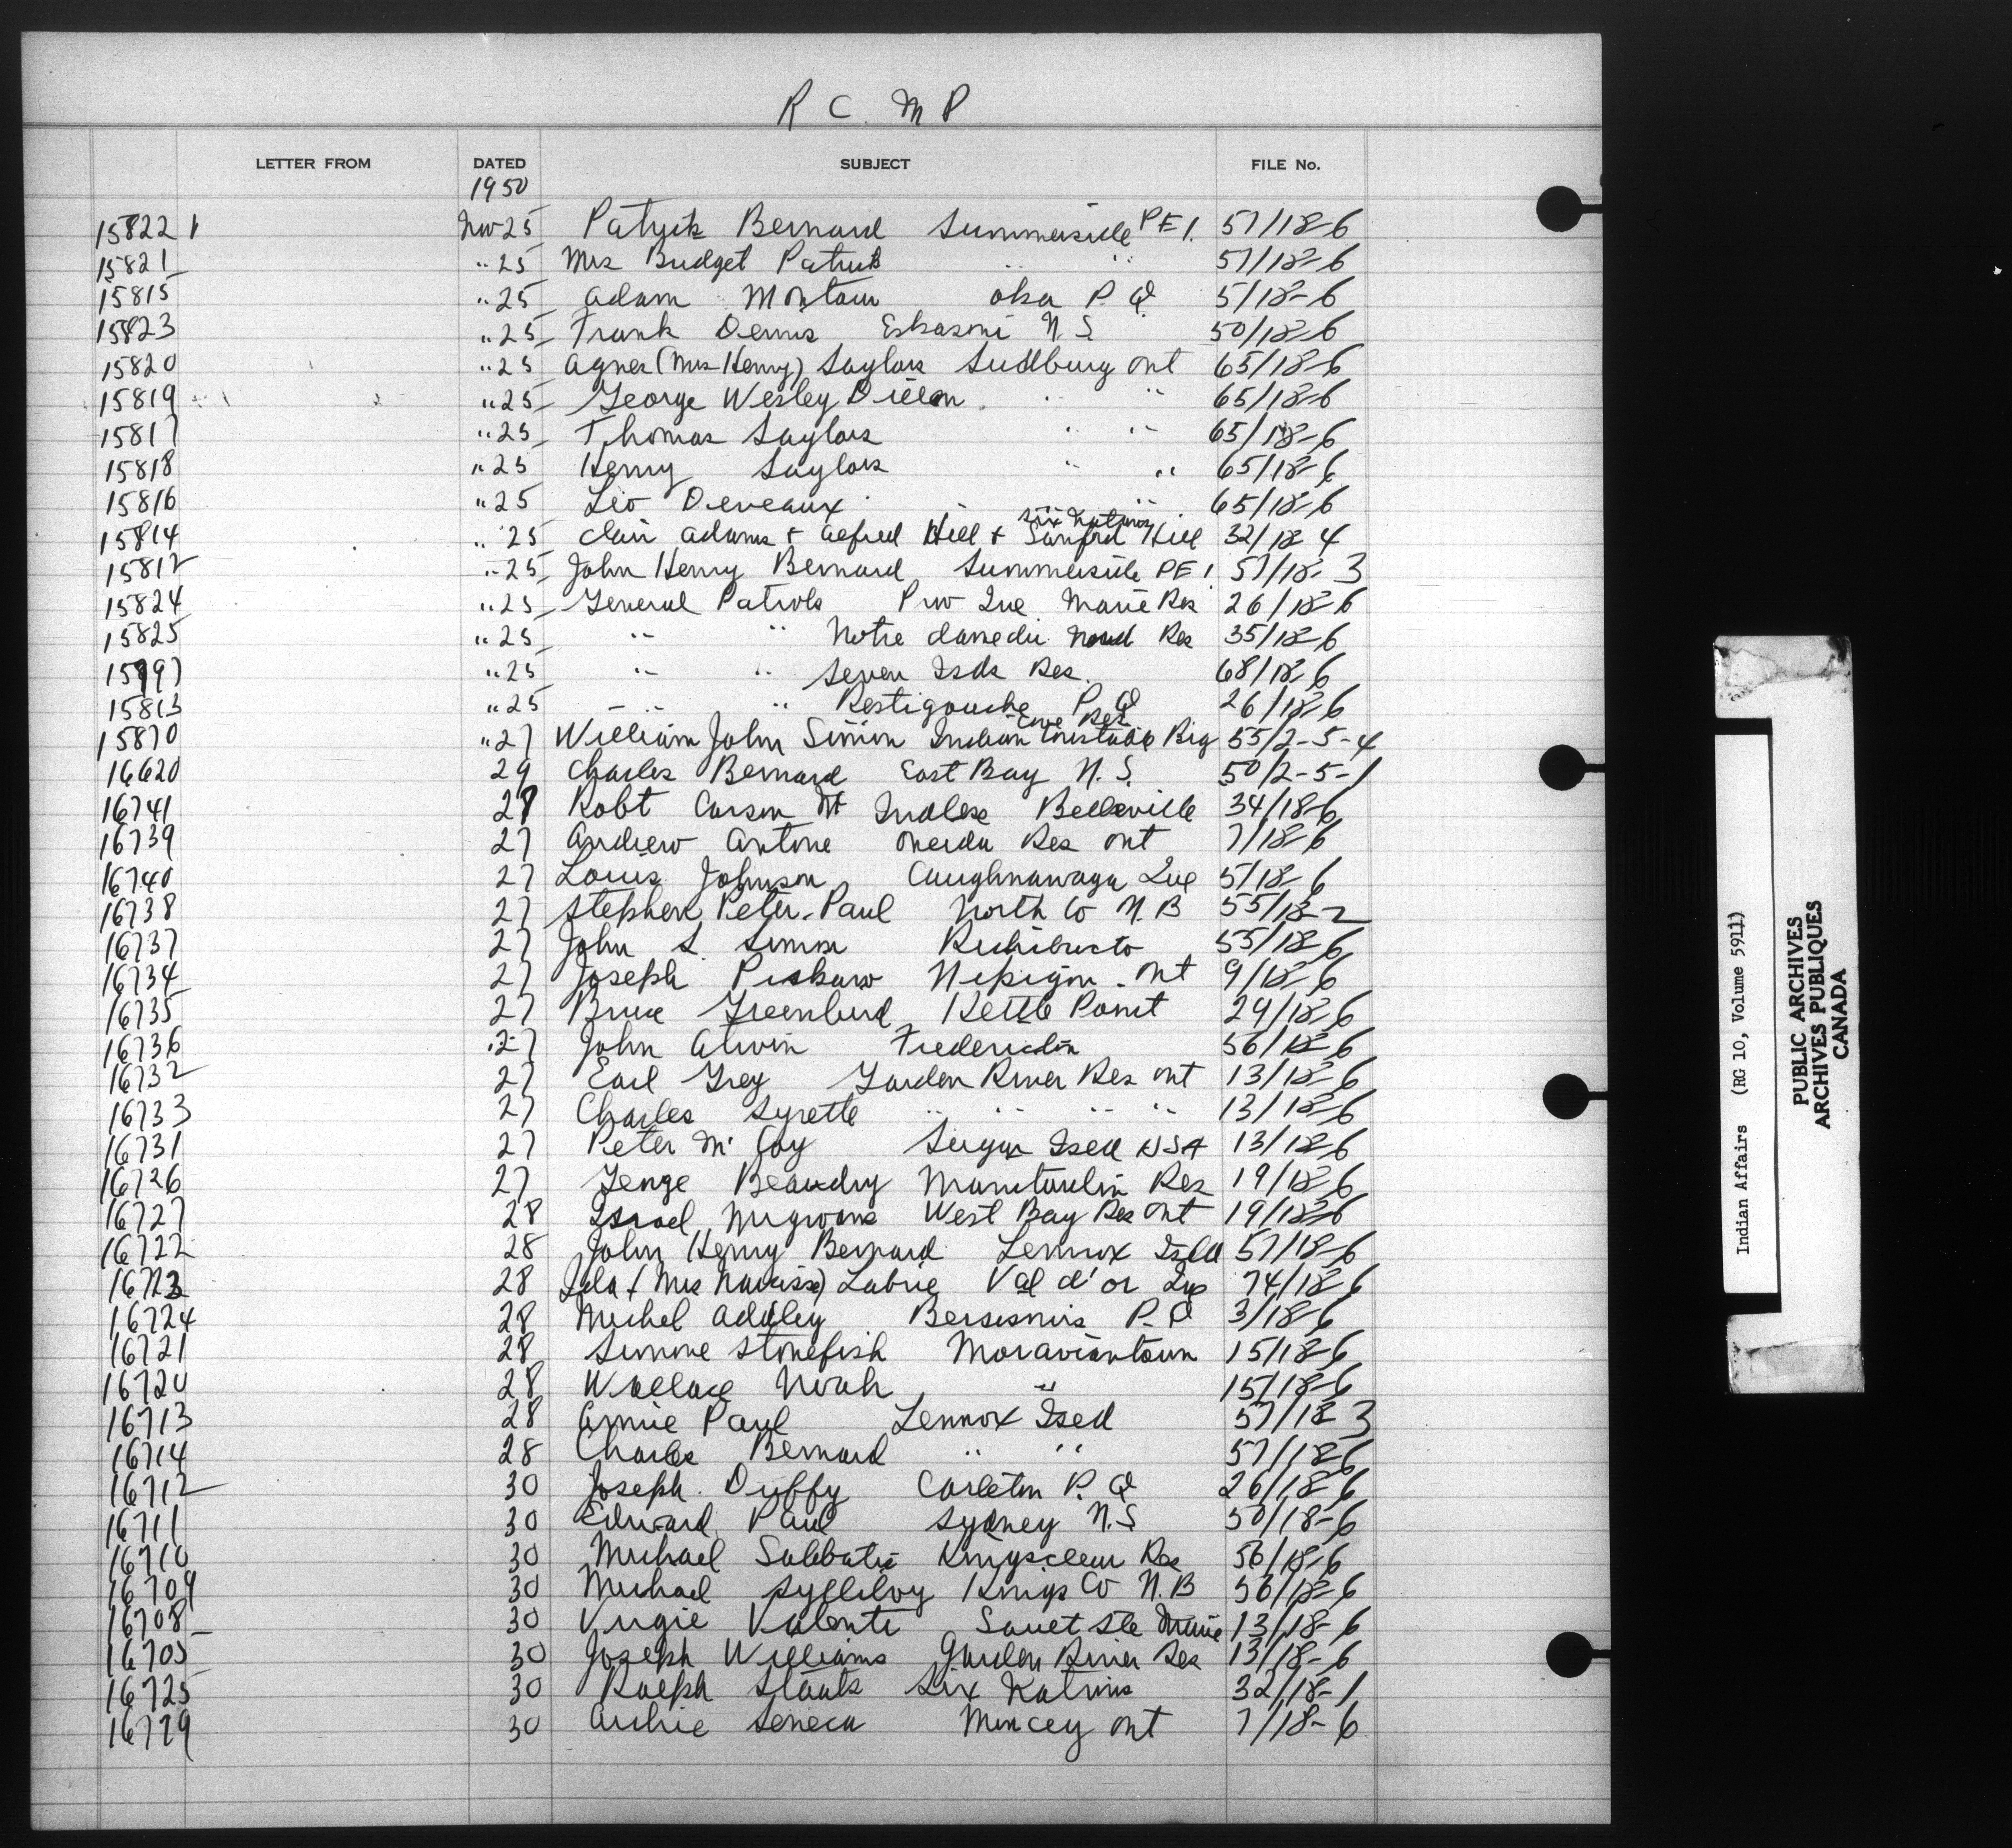 R C. M P
LETTER FROM DATED SUBJECT FILE No.
1950
15822 1 Nov 25 Patrick Bernard Summerside P E I. 57/18-6
15821 " 25 Mrs Bridget Patrick " " 57/18-6
15815 " 25 Adam Montour Oka P. Q 5/18-6
15823 " 25 Frank Dennis Eskasoni N. S 50/18-6
15820 " 25 Agnes (Mrs Henry) Saylors Sudbury Ont 65/18-6
15819 " 25 George Wesley Dillon " " 65/18-6
15817 " 25 Thomas Saylors " " 65/18-6
15818 " 25 Henry Saylors " " 65/18-6
15816 " 25 Leo Deveaux " " 65/18-6
Six Nations
15814 " 25 Clair Adams + Alfred Hill + Sanford Hill 32/18-4
15812 " 25 John Henry Bernard Summerside P E I 57/18-3
15824 " 25 General Patrols Prov Que Maria Res 26/18-6
15825 " 25 " " Notre dame du Nord Res 35/18-6
15797 " 25 " " Seven Isds Res. 68/18-6
15813 " 25 " " Restigouche P Q 26/18-6
Cove Res
15870 " 27 William John Simon Indian Constable Big 55/2-5-4
16620 29 Charles Bernard East Bay N. S. 50/2-5-1
16741 28 Robt Carson Mt Belleville 34/18-6
16739 27 Andrew Antone Oneida Res Ont 7/18-6
16740 27 Louis Johnson Caughnawaga Que 5/18-6
16738 27 Stephen Peter-Paul North Co N. B 55/18-2
16737 27 John S. Simon Richibucto 55/18-6
16734 27 Joseph Nipigon - Ont 9/18-6
16735 27 Bruce Greenbird Kettle Point 29/18-6
16736 27 John Atwin Fredericton 56/18-6
16732 27 Earl Grey Garden River Res Ont 13/18-6
16733 27 Charles Syrette " " " " 13/18-6
16731 27 Peter McCoy Sugar Isld USA 13/18-6
16726 27 George Beaudry Manitoulin Res 19/18-6
16727 28 Israel Migwans West Bay Res Ont 19/18-6
16722 28 John Henry Bernard Lennox Isld 57/18-6
16723 28 Ida (Mrs Narcisse) Labrie Val d'or Que 74/18-6
16724 28 Michel Adeley Bersimis P. Q 3/18-6
16721 28 Simone Stonefish Moraviantown 15/18-6
16720 28 Wallace Noah " 15/18-6
16713 28 Annie Paul Lennox Isld 57/18-3
16714 28 Charles Bernard " " 57/18-6
16712 30 Joseph Duffy Carleton P. Q 26/18-6
16711 30 Edward Paul Sydney N. S 50/18-6
16710 30 Michael Sabbatis Kingsclear Res 56/18-6
16709 30 Michael Kings Co N. B 56/18-6
16708 30 Virgie Valenti Sault Ste Marie 13/18-6
16705 30 Joseph Williams Garden River Res 13/18-6
16725 30 Ralph Staats Six Nations 32/18-1
16729 30 Archie Seneca Muncey Ont 7/18-6
Indian Affairs (RG 10, Volume 5911)
PUBLIC ARCHIVES
ARCHIVES PUBLIQUES
CANADA